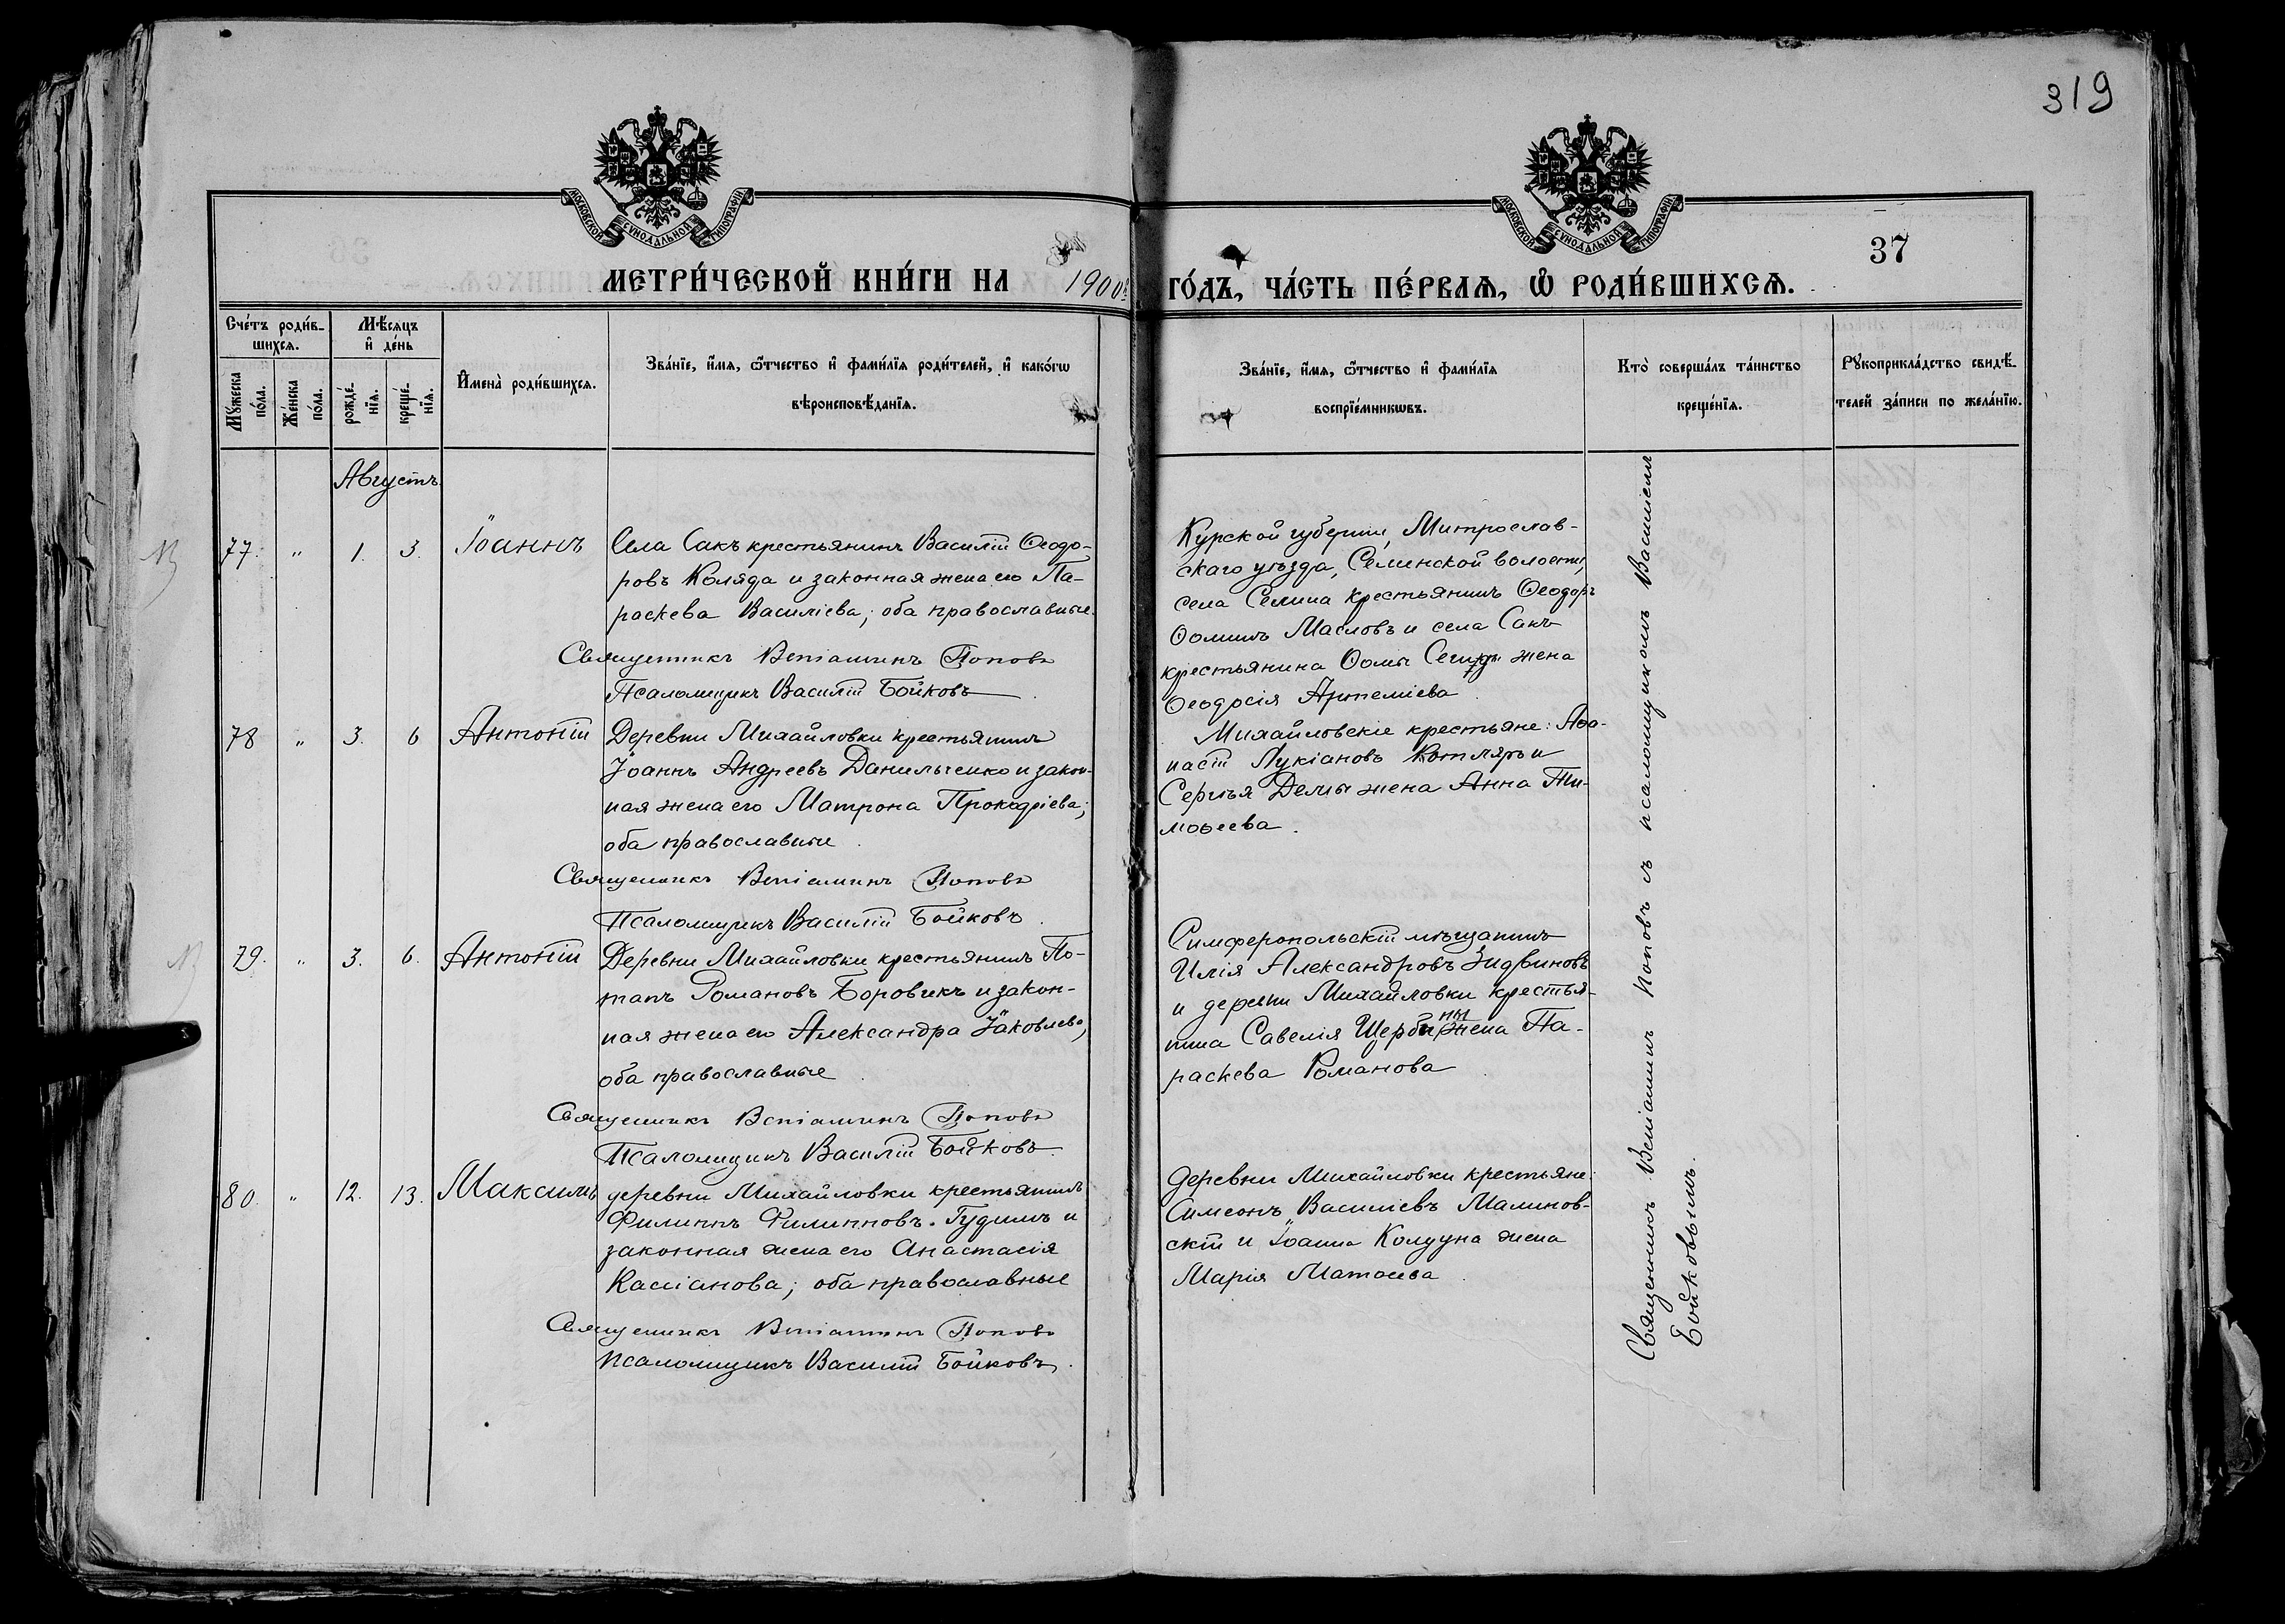 319
МОСКОВСКОЙ СѴНОДАЛЬНОЙ ТИПОГРАФІИ
МОСКОВСКОЙ СѴНОДАЛЬНОЙ ТИПОГРАФІИ
37
МЕТРИ́ЧЕСКОЙ КНИ́ГИ НА 1900й ГО́ДЪ, ЧА́СТЬ ПЕ́РВАѦ, Ѡ РОДИ́ВШИХСѦ.
Сче́тъ роди́в-
шихсѧ.
Мꙋ́жеска по́ла.
Же́нска по́ла.
Мѣ́сѧцъ
и҆ де́нь
рожде́-
нїѧ.
креще́-
нїѧ.
И҆мена̀ роди́вшихсѧ.
Зва́нїе, и҆́мѧ, ѻ҆́тчество и҆ фами́лїѧ роди́телей, и҆ како́гѡ
вѣроисповѣ́данїѧ.
Зва́нїе, и҆́мѧ, ѻ҆́тчество и҆ фами́лїѧ
воспрїе́мникѡвъ.
Кто̀ соверша́лъ та́инство
креще́нїѧ.
Рꙋкоприкла́дство свидѣ́-
телей за́писи по жела́нїю.
Августъ.
77. " 1. 3. Іоаннъ
Села Сакъ крестьянинъ Василій Ѳеодо-
ровъ Коляда и законная жена его Па-
раскева Василіева; оба православные.
Священникъ Веніаминъ Поповъ
Псаломщикъ Василій Бойковъ.
Курской губерніи, Митрослав-
скаго уѣзда, Селинской волости,
села Селина крестьянинъ Ѳеодоръ
Ѳоминъ Масловъ и села Сакъ
крестьянина Ѳомы жена
Ѳеодосія Артеміева.
78 " 3. 6 Антоній
Деревни Михайловки крестьянинъ
Іоаннъ Андреевъ Данильченко и закон-
ная жена его Матрона Прокофіева;
оба православные.
Священникъ Веніаминъ Поповъ
Псаломщикъ Василій Бойковъ.
Михайловскіе крестьяне: Аѳа-
насій Лукіановъ Котляръ и
Сергѣя Демы жена Анна Ти-
моѳеева.
79. " 3. 6. Антоній
Деревни Михайловки крестьянинъ По-
тапъ Романовъ Боровикъ и закон-
ная жена его Александра Іаковлева,
оба православные.
Священникъ Веніаминъ Поповъ
Псаломщикъ Василій Бойковъ.
Симферопольскій мѣщанинъ
Илія Александровъ Зидвиновъ
и деревни Михайловки крестья-
нина Савелія Щербины жена Па-
раскева Романова.
80. " 12. 13. Максимъ
деревни Михайловки крестьянинъ
Филиппъ Филипповъ Гудимъ и
законная жена его Анастасія
Кассіанова; оба православные
Священникъ Веніаминъ Поповъ
Псаломщикъ Василій Бойковъ.
Деревни Михайловки крестьяне:
Симеонъ Василіевъ Малинов-
скій и Іоанна Колдуна жена
Марія Матѳеева.
Священникъ Веніаминъ Поповъ съ псаломщикомъ Василіемъ
Бойковымъ.